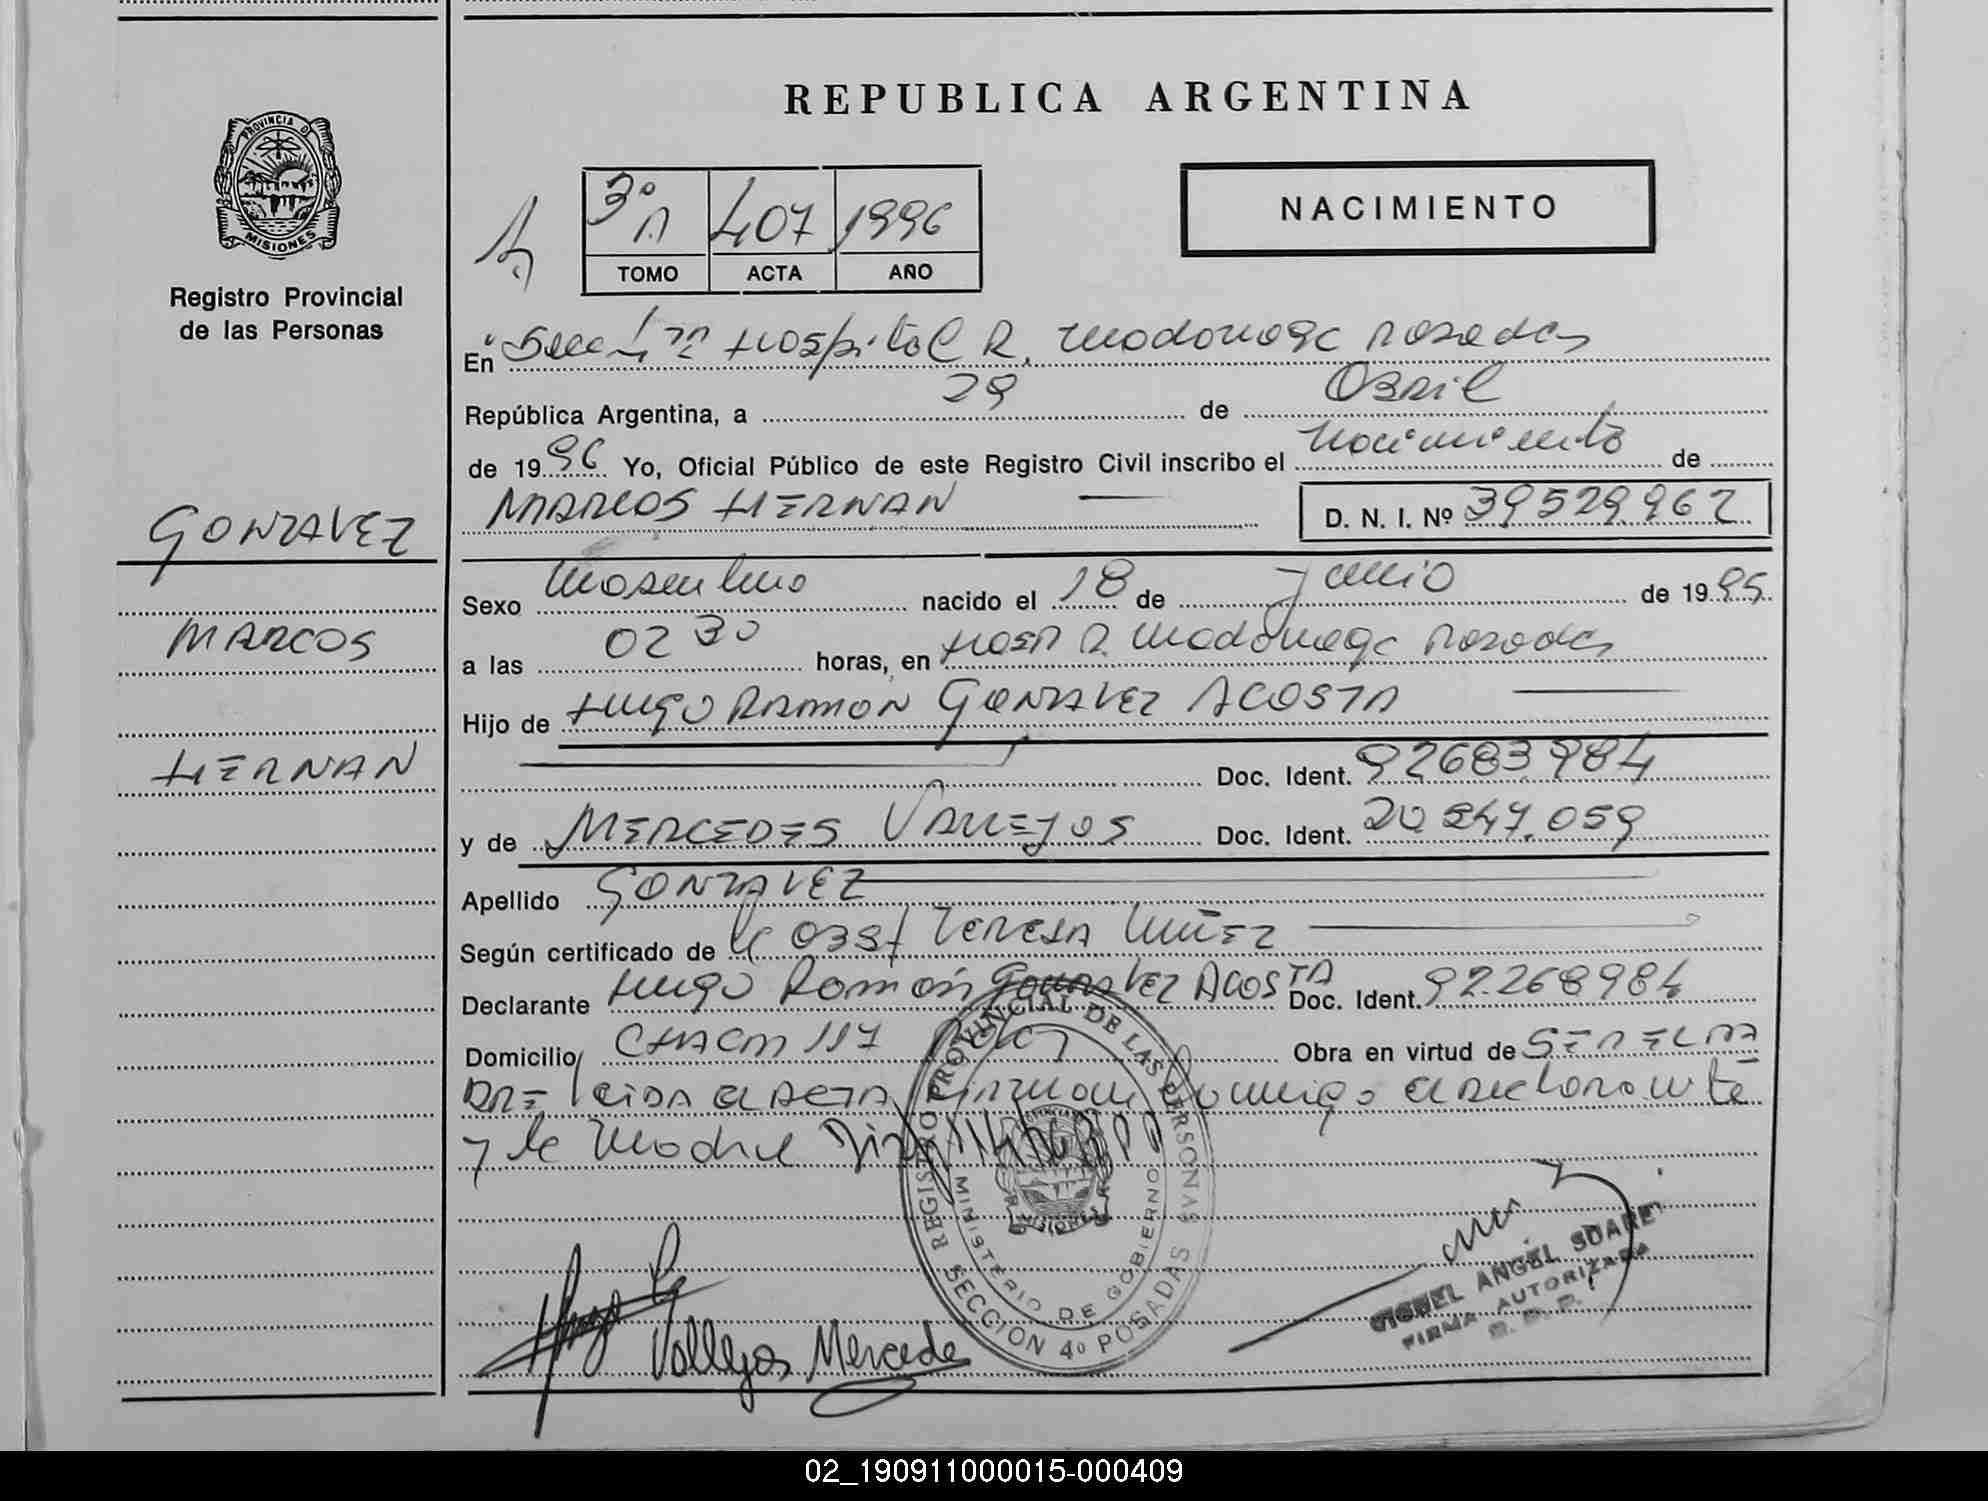 REPUBLICA ARGENTINA
PROVINCIA D
MISIONES
Registro Provincial
de las Personas
3º A 407 1996
TOMO ACTA AÑO
NACIMIENTO
En Hospital R. Madariaga Posadas
República Argentina, a 29 de Abril
de 1996 Yo, Oficial Público de este Registro Civil inscribo el nacimiento de
MARCOS HERNAN D. N. I. Nº 39529962
GONZALEZ
Sexo Masculino nacido el 18 de Junio de 1995
MARCOS
a las 02 30 horas, en Hosp R. Madariaga Posadas
Hijo de HUGO RAMON GONZALEZ ACOSTA
HERNAN
Doc. Ident. 92683984
y de MERCEDES VALLEJOS Doc. Ident. 20.847.059
Apellido GONZALEZ
Según certificado de la OBST TERESA
Declarante Hugo Ramón GONZALEZ ACOSTA Doc. Ident. 92.268984
Domicilio CHACRA 117 Obra en virtud de SER EL PA
DRE, LEIDA el ACTA firman conmigo el declarante
y la Madre
REGISTRO PROVINCIAL DE LAS PERSONAS
MINISTERIO DE GOBIERNO
MISIONES
SECCION 4º POSADAS
Vallejos Mercede
ANGEL SUARE
FIRMA AUTORIZADA
02_190911000015-000409